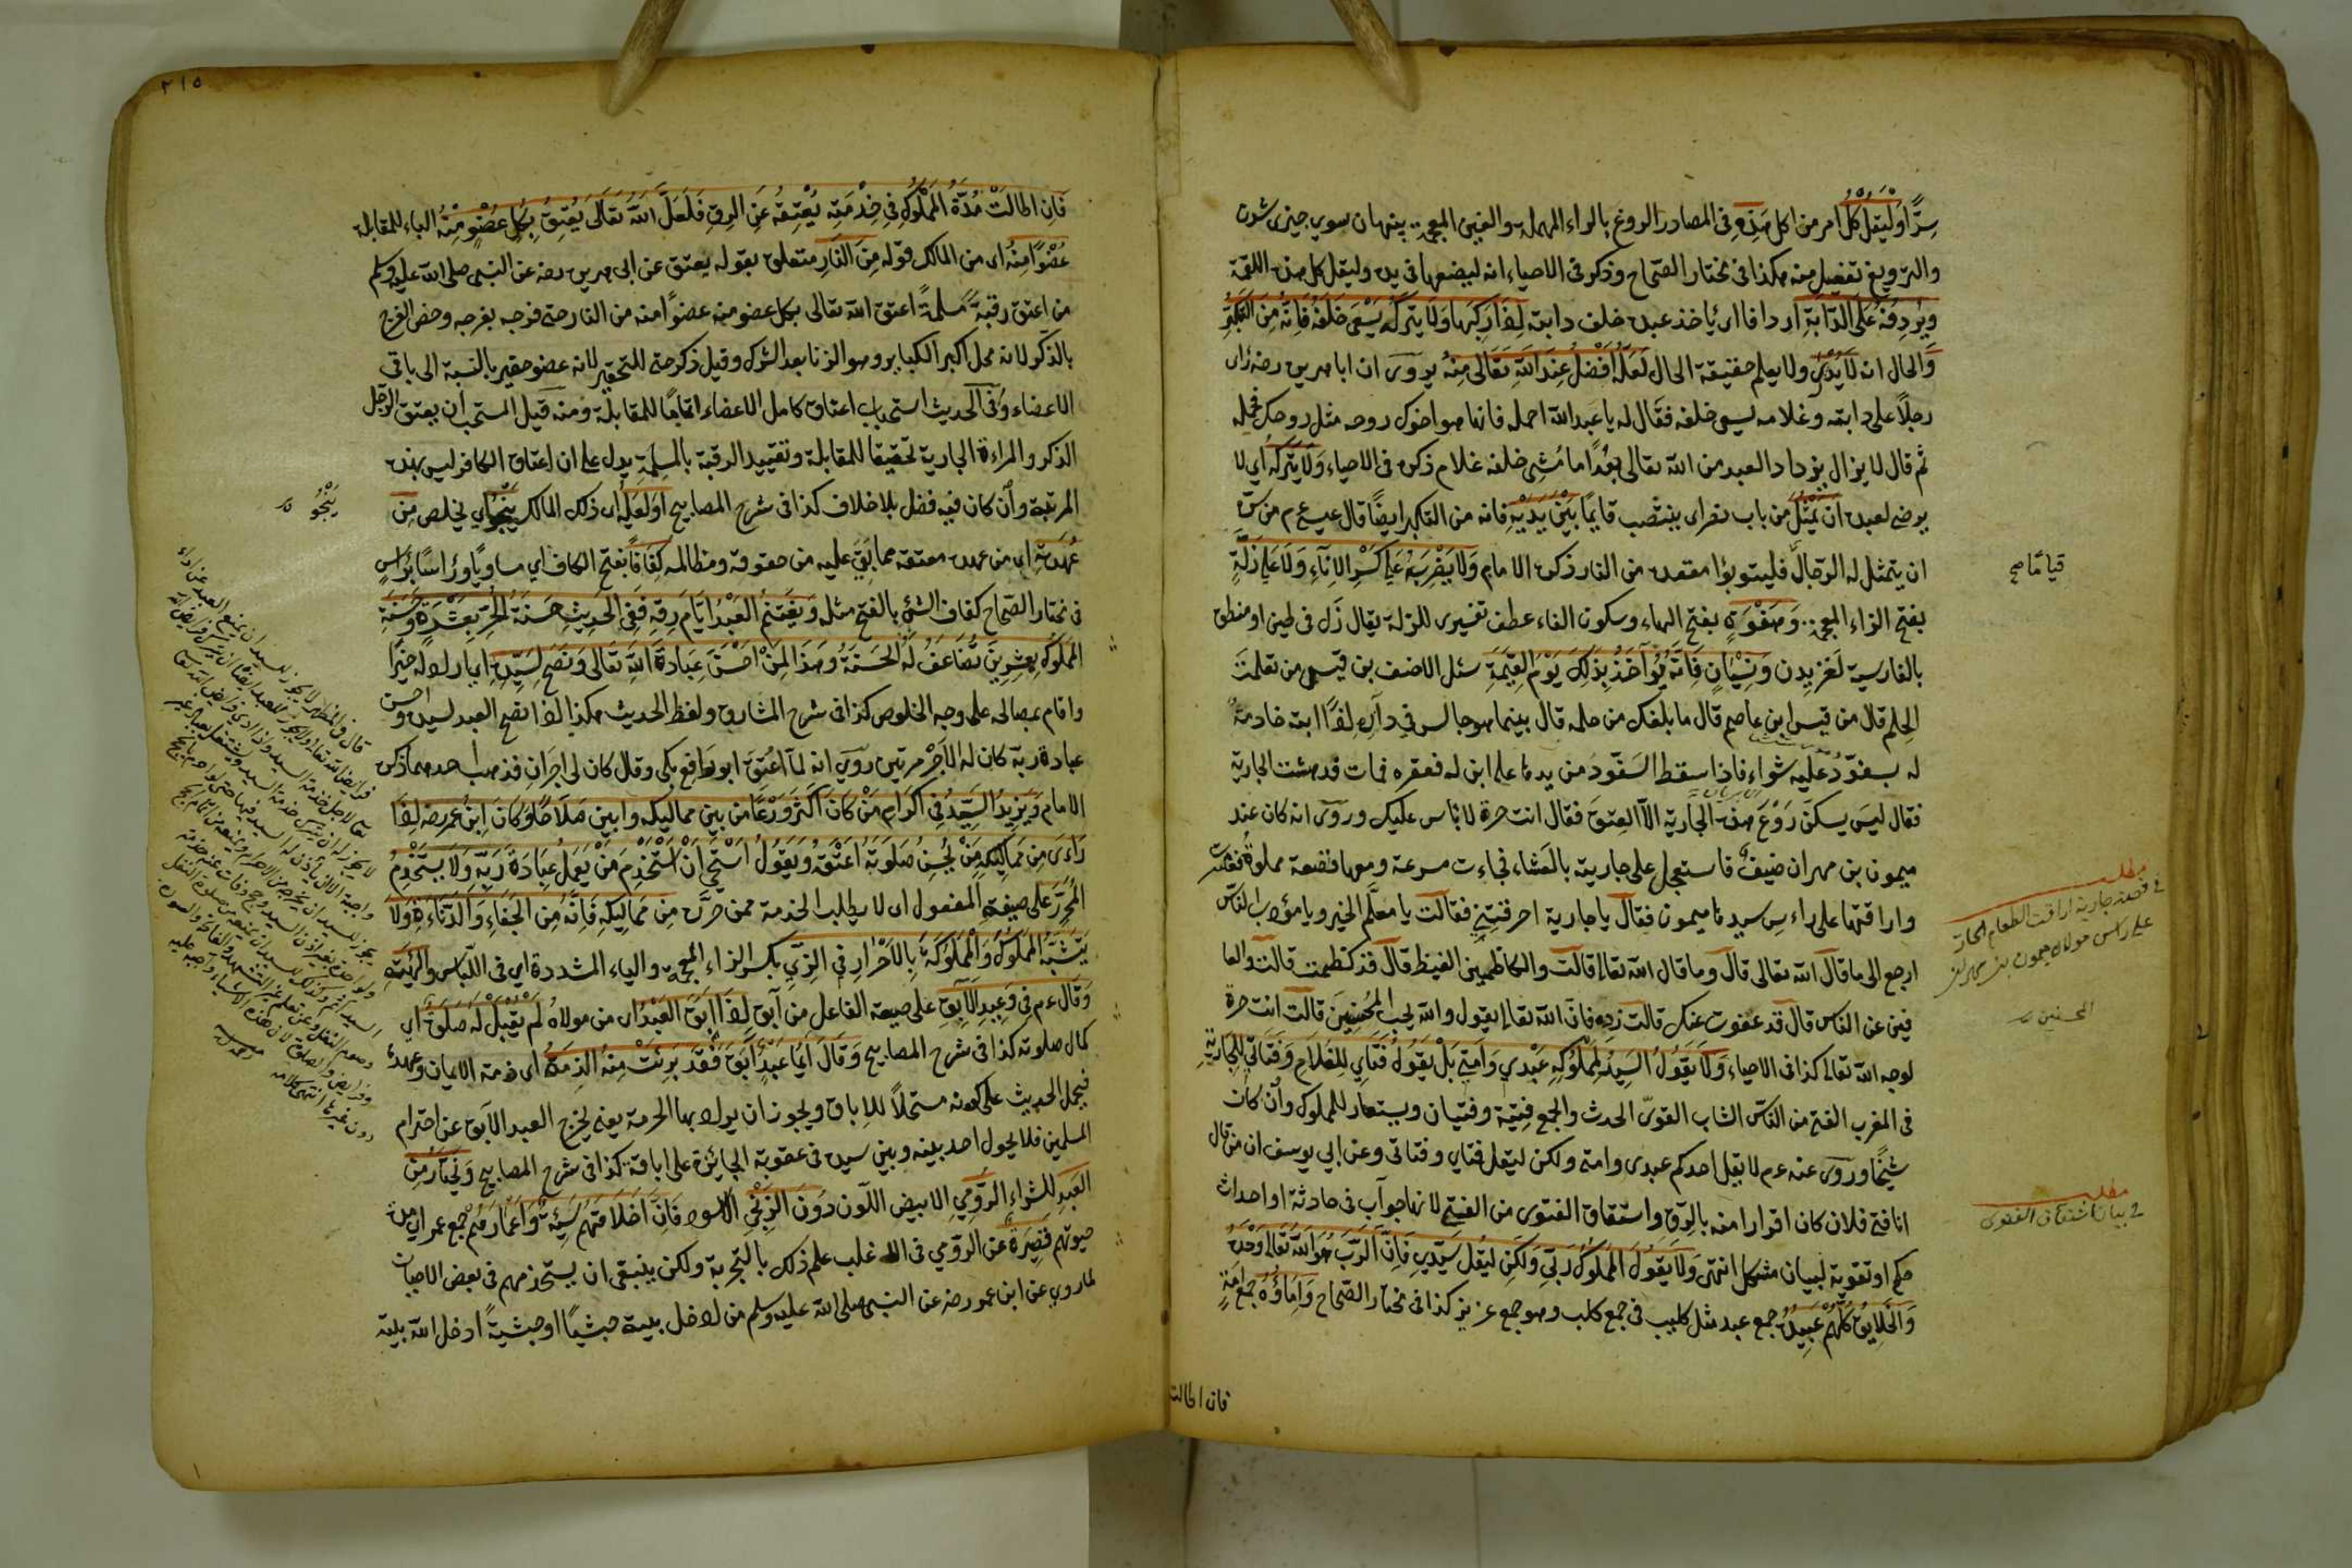 سِرًّا وَلْيَقُلْ كُلْ امر من اكل هَذِهِ فى المصادر الروغ بالراء المهملة والغين المعجمة پنهان سوي چيزى شدن
والترويغ تفعيل منه هكذا فى مختار الصّحاح وذكر فى الاحياء انه ليضعها فى يده وليقل كل هذه اللقمة
وَيُرْدِفَهُ عَلَى الدَّابَّةِ اردافا اى ياخذ عبده خلف دابته اِذَا رَكِبَهَا وَلَا يَتْرُكُهُ يَسْعَى خَلْفَهُ فَاِنَّهُ مِنَ التَّكَبُّرِ
وَالحال انه لَا يَدْرِى ولا يعلم حقيقة الحال لَعَلَّهُ اَفْضَلُ عِنْدَ اللهِ تَعَالَى مِنْهُ يروى ان ابا هريره رضه راى
رجلاً على دابته وغلامه يسعى خلفه فقال له يا عبد الله احمله فانما هو اخوك روحه مثل روحك فحمله
ثم قال لا يزال يزداد العبد من الله تعالى بُعْدًا ما مُشِى خلفه غلام ذكره فى الاحياء وَلَا يَتْرُكُهُ اى لا
يرضى لعبده ان يَمْثُلَ من باب نصر اى ينتصب قايمًا بَيْنَ يَدَيْهِ فانه من التكبر ايضًا قال عم من سَرَّه
ان يتمثل له الرجال فليتبوؤا مقعده من النار ذكره الامام وَلَا يَضْرِبَهُ عَلَى كَسْرِ الاِنَآءِ وَلَا عَلَى زَلَّةٍ
بفتح الزاء المعجمة وَهَفْوَةٍ بفتح الهاء وسكون الفاء عطف تفسيرى للزلة يقال زَل فى طين او منطق
بالفارسية لغزيدن وَنِسْيَانٍ فَاِنَّهُ يُؤَاخَذُ بِذَلِكَ يَوْمَ القِيٰمَةِ سئل الاحنف بن قيس ممن تعلمتَ
الحِلم قال من قيس ابن عاصم قال ما بلغك من حلمه قال بينما هو جالس فى داره اِذْ اَتته خادمةٌ
له بسفّود عليه شواء فاذا سقط السَفّود من يدها على ابن له فعقره فمات فدهشت الجارية
فقال ليس يسكنُ رَوْعَ هذه الجارية الّا العِتق فقال انت حرة لا باس عليك وروى انه كان عند
ميمون بن مهران ضيفٌ فاستعجل على جارية بالعَشاء فجاءت مسرعة ومعها قصعة مملوة فعثرت
واراقتها على راس سيدها ميمون فقال يا جارية احرقتِنى فقالت يا معلّم الخير ويا مؤدب الناس
ارجع الى ما قال الله تعالى قال وما قال الله تعالى قالت والكاظمين الغيظ قال قد كظمت قالت والعا
فين عن الناس قال قد عفوت عنك قالت زده فان الله تعالى يقول والله يحب المحسنين قالت انت حرة
لوجه الله تعالى كذا فى الاحياء وَلَا يَقُولُ السَيِّدُ لِمَمْلُوكِهِ عَبْدِي وَاَمَتِي بَلْ يَقُولُ فَتَايَ لِلْغُلَامِ وَفَتَاتِي لِلْجَارِيَةِ
فى المغرب الفتى من الناس الشاب القوىّ الحدث والجمع فِتية وفتيان ويستعار للمملوك وان كان
شيخًا وروى عنه عم لا يقل احدكم عبدى وامتى ولكن ليقل فتاي وفتاتى وعن ابى يوسف ان من قال
انا فتى فلان كان اقرارا منه بالرِّق واشتقاق الفتوى من الفتى لانها جواب فى حادثة او احداث
حكم او تقوية لبيان مشكل انتهى وَلَا يَقُولَ المَمْلُوكُ رَبِّي وَلَكِن لِيَقُل سَيِّدِي فَاِنَّ الرَّبَّ هُوَ اللهُ تَعَالَى وَحْدَهُ
وَالخَلَايِقُ كُلُّهُمْ عَبِيدُهُ جمع عبد مثل كليب فى جمع كلب وهو جمع عزيز كذا فى مختار الصّحاح وَاِمَاؤُهُ جمع اَمَةٍ
فان اطالت
قيامًا صح
مطلب
فى قصة جارية اراقت الطعام الحار
على راس مولاه ميمون بن مهران
المحسنين
مطلب
فى بيان اشتقاق الفتوى
٢١٥
فَاِن اطَالَتْ مُدَّةُ المَمْلُوكِ فِي خِدْمَتِه يُعْتِقُهُ عَنِ الرِقِّ فَلَعَلَّ اللهَ تَعَالَى يُعْتِقُ بِكُلِّ عُضْوٍ مِنْهُ الباء للمقابلة
عُضْوًا مِنْهُ اى من المالك قوله مِنَ النَّارِ متعلق بقوله يعتق عن ابى هريره رضه عن النبى صلى الله عليه وسلم
من اعتق رقبةً مسلمةً اعتق الله تعالى بكل عضو منه عضوًا منه من النار حتى فرجه بفرجه وخص الفرج
بالذكر لانه محل اكبر الكباير وهو الزنا بعد الشرك وقيل ذكر حتى للتحقير لانه عضو حقير بالنسبة الى باقى
الاعضاء وفى الحديث استحباب اعتاق كامل الاعضاء اتمامًا للمقابلة ومنه قيل المستحب ان يعتق الرجل
الذكر والمراءة الجارية تحقيقا للمقابلة وتقييد الرقبة بالمسلمة يدل على ان اعتاق الكافر ليس بهذه
المرتبة وان كان فيه فضل بلا خلاف كذا فى شرح المصابيح اَوْ لَعَلَّهُ اى ذلك المالك يَنْجُو اى يخلص مِن
عُهْدَتِهِ اى من عهدة معتقه مما بَقِيَ عليه من حقوقه ومظالمه كَفَافًا بفتح الكاف اي مساويًا وراسًا برَاسٍ
فى مختار الصّحاح كفاف الشئ بالفتح مثله وَيَغْتَنِمُ العَبْدُ اَيَّامَ رِقِّهِ فَفِي الحَدِيثِ حَسَنَةُ الحُرِّ بِعَشْرَةٍ وَحَسَنَةُ
المَمْلُوكِ بِعِشْرِينَ تُضَاعَفُ لَهُ الحَسَنَةُ وَهَذَا لِمَنْ اَحْسَنَ عِبَادَةَ اللهِ تَعَالَى وَنَصَحَ لِسَيِّدِهِ اى اراد له خيرا
واقام بمصالحه على وجه الخلوص كذا فى شرح المشارق ولفظ الحديث هكذا اذا نصح العبد لسيده واحسن
عبادة ربه كان له الاَجْرُ مرتين رُوِيَ انه لمّا اُعْتِقَ ابو رَافع بكى وقال كان لى اجرَانِ فذهب احدهما ذكره
الامام وَيَزِيدُ السَيِّدُ فِي اكْرَامِ مَنْ كَانَ اَكْثَرَ وَرَعًا من بين مماليكه وابين صَلَاحًا وَكَانَ ابْنُ عُمَرَ رضه اِذَا
رَأَى مِن مَمَالِيكِهِ مَنْ يُحْسِنُ صَلَوتَهُ اَعْتَقَهُ وَيَقُولُ اَسْتَحْيِ اَنْ اَسْتَخْدِمَ مَنْ يَعْمَلُ عِبَادَةَ رَبِّهِ وَلَا يَسْتَخْدِمُ
المُحَرَّرَ على صيغة المفعول اى لا يطلب الخدمة ممن حرّره مِن مَمَالِيكِهِ فَاِنَّهُ مِنَ الجَفَاءِ وَالدَّنَاءَةِ وَلَا
يَتَشَبَّهُ المَمْلُوكُ وَالمَمْلُوكَةُ بِالاَحْرَارِ فِي الزِّيّ بكسر الزاء المعجمة والياء المشددة اي فى اللباس والهَيْئةِ
وَقَالَ عم فِي وَعِيدِ الآبِقِ على صيغة الفاعل من اَبق اِذَا اَبَقَ العَبْدُ اى من مولاهُ لَمْ يُقْبَلْ لَهُ صَلٰوةٌ اي
كمال صلوته كذا فى شرح المصابيح وَقَالَ اَيُّمَا عَبْدٍ اَبَقَ فَقَدْ بَرِئَتْ مِنْهُ الذِمَّةُ اى ذمة الايمان وعهده
فيحمل الحديث على كونه مستحلاً للاِباق ويجوز ان يراد بها الحرمة يعنى يخرج العبد الآبق عن احترام
المسلمين فلا يحول احد بينه وبين سيده فى عقوبة الجايزة على اباقه كذا فى شرح المصابيح وَيَخْتَارُ مِنَ
العَبِيدِ للشراء الرُّومِي الابيض اللون دُونَ الزَنْجِي الاسود فَاِنَّ اَخْلَاقَهُمْ سَيِّئَةٌ وَاَعْمَارَهُمْ جمع عمر اى مدة
حيوتهم قَصِيرَةٌ عن الرومي فى الله غلب علم ذلك بالتجربة ولكن ينبغى ان يستخذ منهم فى بعض الاحيان
لما روي عن ابن عمر رضه عن النبى صلى الله عليه وسلم من ادخل بيته حبشيًا او حبشيةً ادخل الله بيته
يَنْجُو